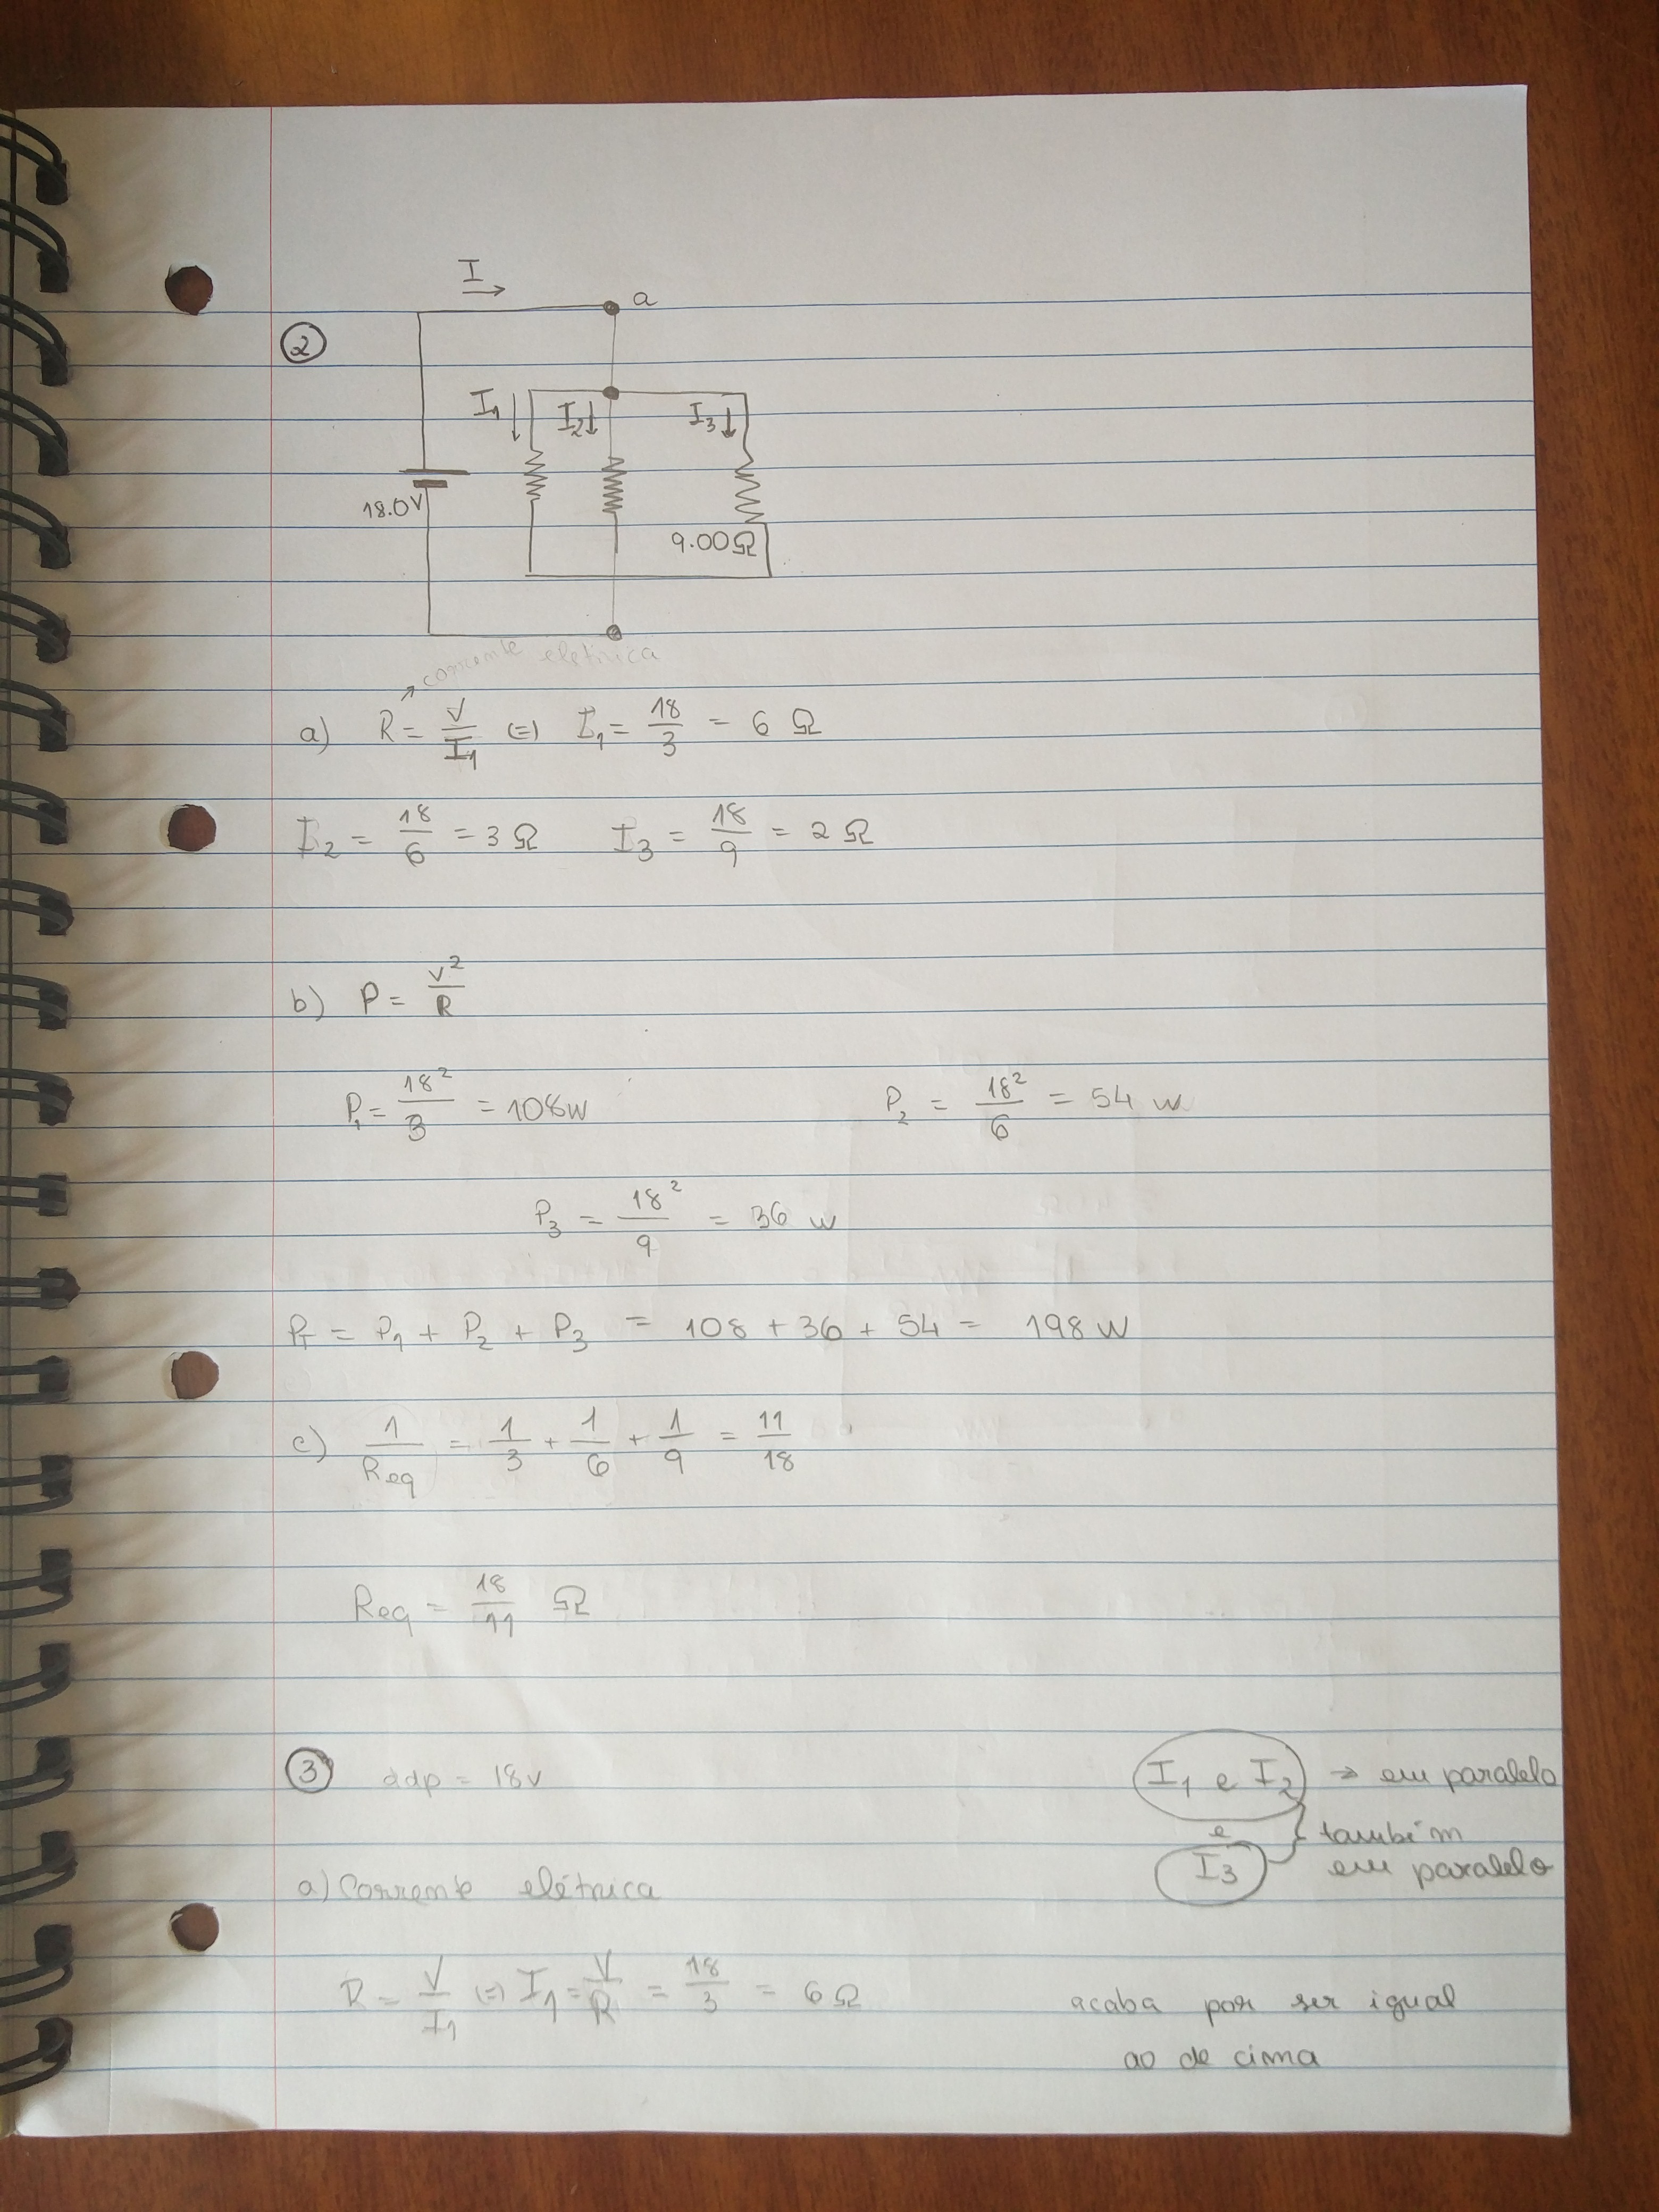 I
a
2
I1 I2 I3
18.0V
9.00Ω
corrente eletrica
a) R = V/I1 (=) I1 = 18/3 = 6 Ω
I2 = 18/6 = 3 Ω I3 = 18/9 = 2 Ω
b) P = V²/R
P1 = 18²/3 = 108W P2 = 18²/6 = 54 W
P3 = 18²/9 = 36 W
PT = P1 + P2 + P3 = 108 + 36 + 54 = 198 W
c) 1/Req = 1/3 + 1/6 + 1/9 = 11/18
Req = 18/11 Ω
3 ddp = 18V
I1 e I2 → em paralelo
e
I3
também
em paralelo
a) Corrente elétrica
R = V/I1 (=) I1 = V/R = 18/3 = 6 Ω
acaba por ser igual
ao de cima